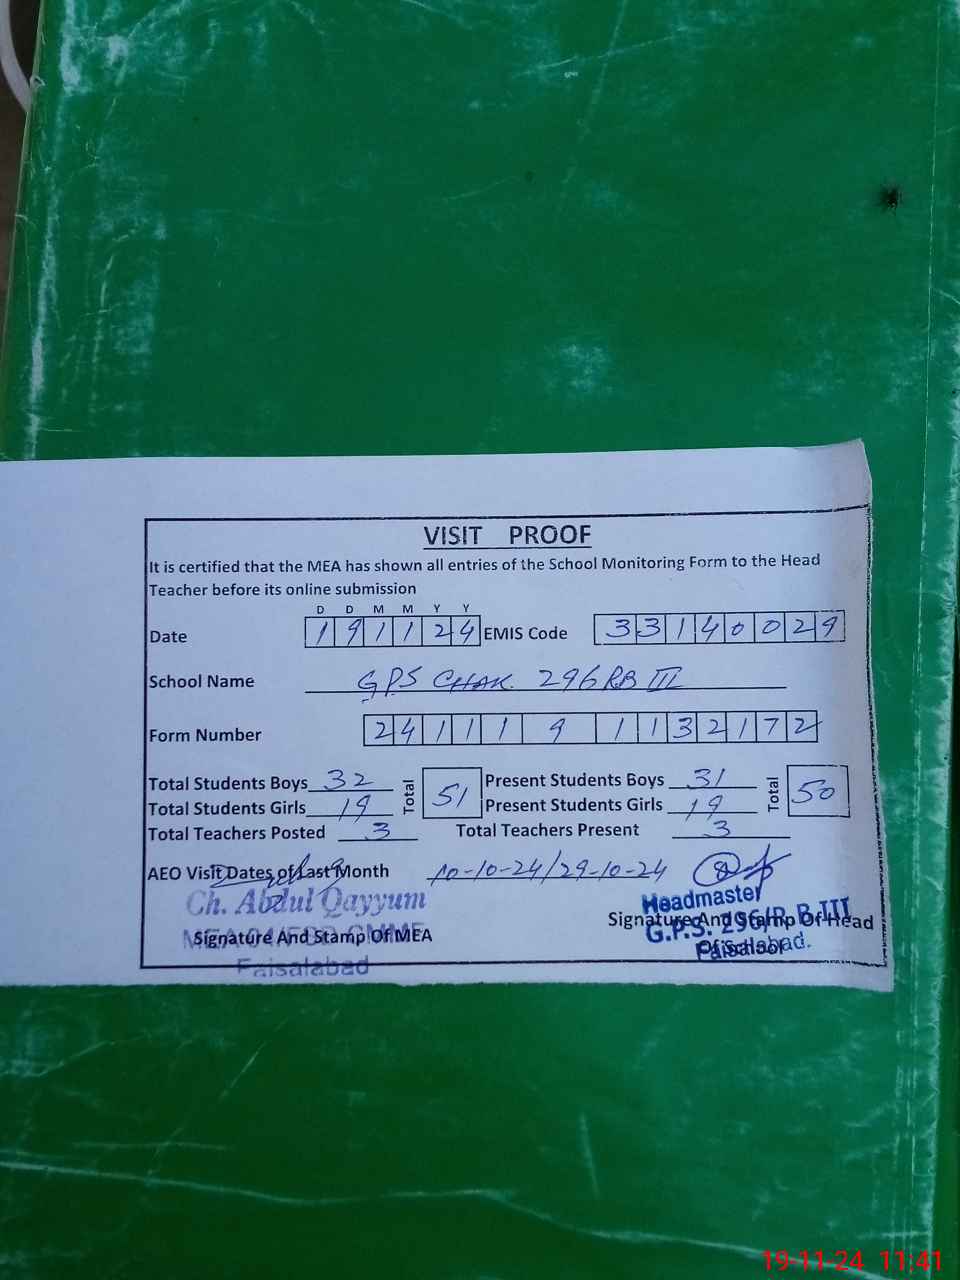 VISIT PROOF
It is certified that the MEA has shown all entries of the School Monitoring Form to the Head
Teacher before its online submission
D D M M Y Y
Date 1 9 1 1 2 4 EMIS Code 3 3 1 4 0 0 2 9
School Name GPS CHAK 296 RB III
Form Number 2 4 1 1 1 9 1 1 3 2 1 7 2
Total Students Boys 32 Total 51 Present Students Boys 31 Total 50
Total Students Girls 19 Present Students Girls 19
Total Teachers Posted 3 Total Teachers Present 3
AEO Visit Dates of Last Month 10-10-24/29-10-24
Ch. Abdul Qayyum
Signature And Stamp Of MEA
Faisalabad
Headmaster
Signature And Stamp Of Head
G.P.S. 296/R.B III
Of School
Faisalabad.
19-11-24 11:41